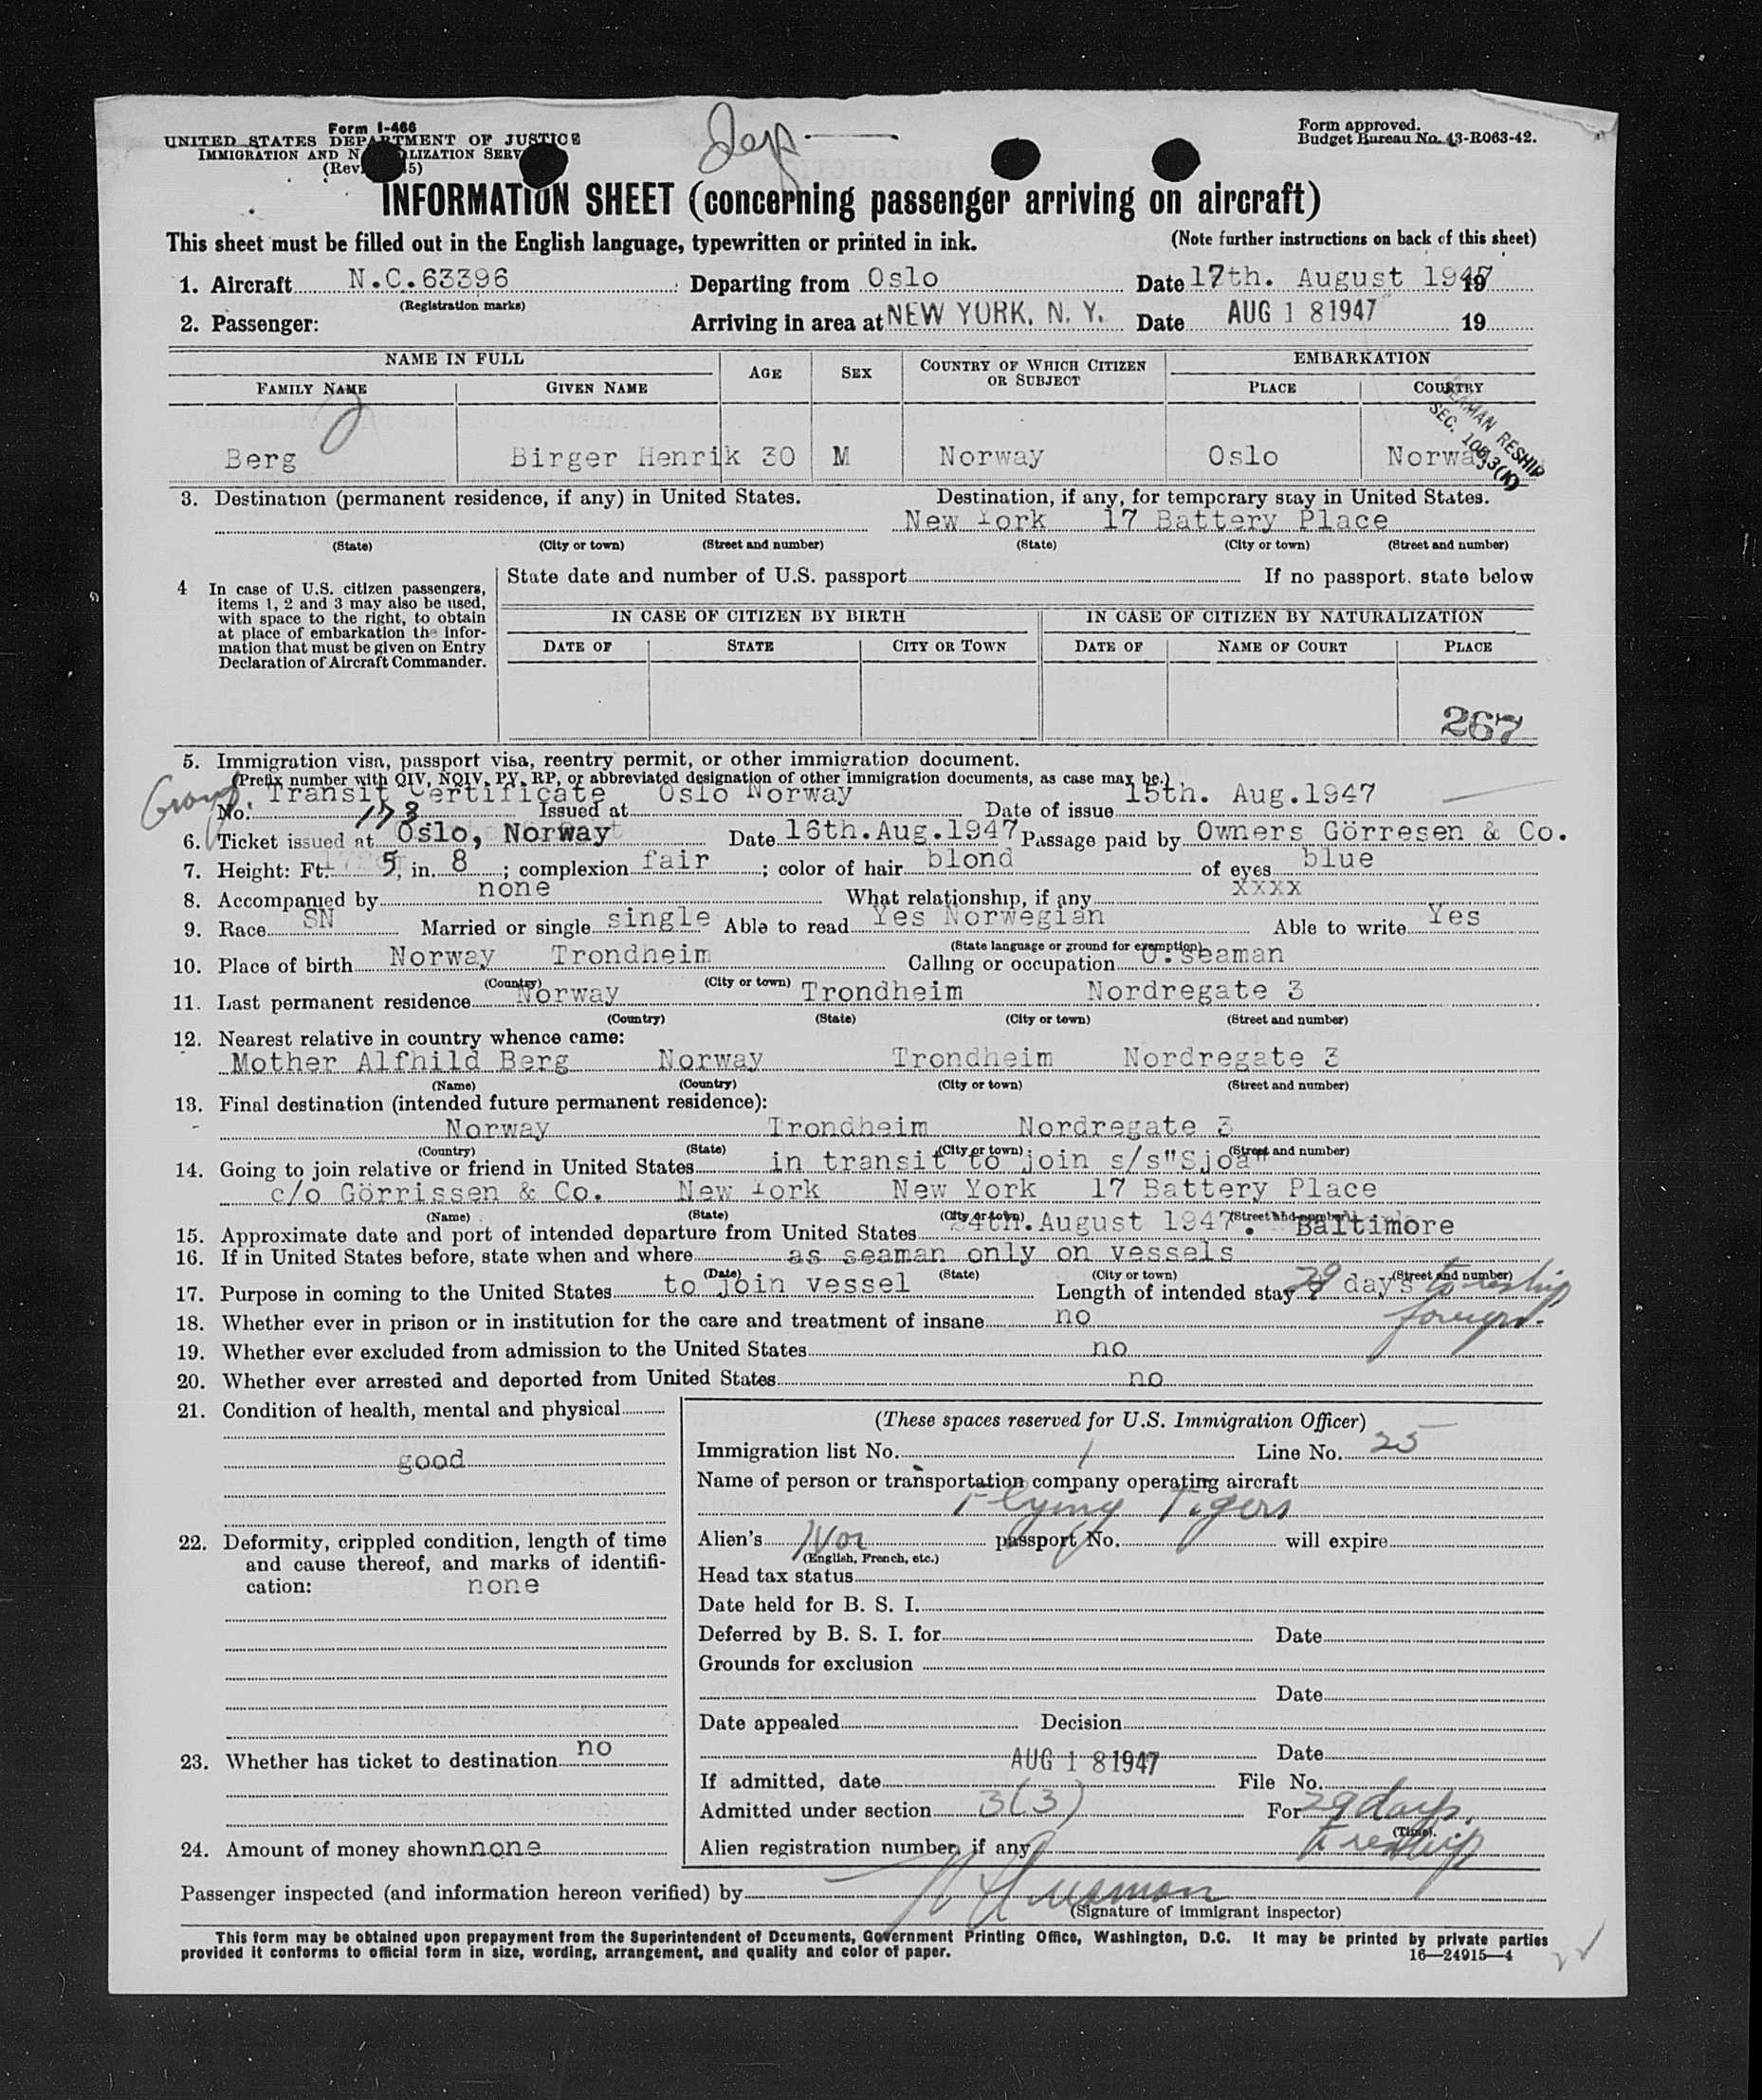 Form I-466
UNITED STATES DEPARTMENT OF JUSTICE
IMMIGRATION AND N LIZATION SERV
(Rev. 5)
Dep
Form approved.
Budget Bureau No. 43-R063-42.
INFORMATION SHEET (concerning passenger arriving on aircraft)
This sheet must be filled out in the English language, typewritten or printed in ink. (Note further instructions on back of this sheet)
1. Aircraft N.C.63396 Departing from Oslo Date 17th. August 1947 19
(Registration marks)
2. Passenger: Arriving in area at NEW YORK, N. Y. Date AUG 18 1947 19
NAME IN FULL AGE SEX COUNTRY OF WHICH CITIZEN OR SUBJECT EMBARKATION
FAMILY NAME GIVEN NAME PLACE COUNTRY
SEAMAN RESHIP
SEC. 10 3(K)
Berg Birger Henrik 30 M Norway Oslo Norway
3. Destination (permanent residence, if any) in United States. Destination, if any, for temporary stay in United States.
New York 17 Battery Place
(State) (City or town) (Street and number) (State) (City or town) (Street and number)
4 In case of U.S. citizen passengers, items 1, 2 and 3 may also be used, with space to the right, to obtain at place of embarkation the information that must be given on Entry Declaration of Aircraft Commander.
State date and number of U.S. passport If no passport, state below
IN CASE OF CITIZEN BY BIRTH IN CASE OF CITIZEN BY NATURALIZATION
DATE OF STATE CITY OR TOWN DATE OF NAME OF COURT PLACE
267
5. Immigration visa, passport visa, reentry permit, or other immigration document.
(Prefix number with QIV, NQIV, PV, RP, or abbreviated designation of other immigration documents, as case may be.)
Group Transit Certificate Oslo Norway 15th. Aug.1947
No. 173 Issued at Date of issue
6. Ticket issued at Oslo, Norway Date 16th.Aug.1947 Passage paid by Owners Görresen & Co.
7. Height: Ft. 5, in. 8; complexion fair; color of hair blond of eyes blue
8. Accompanied by none What relationship, if any xxxx
9. Race SN Married or single single Able to read Yes Norwegian Able to write Yes
(State language or ground for exemption)
10. Place of birth Norway Trondheim Calling or occupation O.seaman
(Country) (City or town)
11. Last permanent residence Norway Trondheim Nordregate 3
(Country) (State) (City or town) (Street and number)
12. Nearest relative in country whence came:
Mother Alfhild Berg Norway Trondheim Nordregate 3
(Name) (Country) (City or town) (Street and number)
13. Final destination (intended future permanent residence):
Norway Trondheim Nordregate 3
(Country) (State) (City or town) (Street and number)
14. Going to join relative or friend in United States in transit to join s/s"Sjoa"
c/o Görrissen & Co. New York New York 17 Battery Place
(Name) (State) (City or town) (Street and number)
15. Approximate date and port of intended departure from United States 24th.August 1947. Baltimore
16. If in United States before, state when and where as seaman only on vessels
(Date) (State) (City or town) (Street and number)
17. Purpose in coming to the United States to join vessel Length of intended stay 29 days to reship
foreign.
18. Whether ever in prison or in institution for the care and treatment of insane no
19. Whether ever excluded from admission to the United States no
20. Whether ever arrested and deported from United States no
21. Condition of health, mental and physical
good
22. Deformity, crippled condition, length of time
and cause thereof, and marks of identifi-
cation: none
23. Whether has ticket to destination no
24. Amount of money shown none
(These spaces reserved for U.S. Immigration Officer)
Immigration list No. 1 Line No. 25
Name of person or transportation company operating aircraft
Flying Tigers
Alien's Nor passport No. will expire
(English, French, etc.)
Head tax status
Date held for B. S. I.
Deferred by B. S. I. for Date
Grounds for exclusion
Date
Date appealed Decision
Date
AUG 18 1947
If admitted, date File No.
Admitted under section 3(3) For 29 days,
(Time).
Alien registration number, if any reship
Passenger inspected (and information hereon verified) by
(Signature of immigrant inspector)
This form may be obtained upon prepayment from the Superintendent of Documents, Government Printing Office, Washington, D.C. It may be printed by private parties
provided it conforms to official form in size, wording, arrangement, and quality and color of paper. 16—24915—4